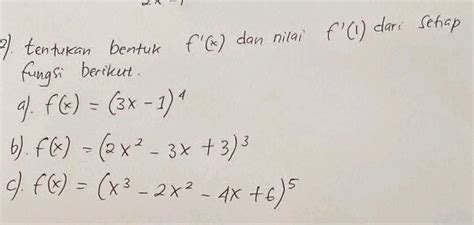 2). tentukan bentuk f'(x) dan nilai f'(1) dari setiap
fungsi berikut.
a). f(x) = (3x - 1)⁴
b). f(x) = (2x² - 3x + 3)³
c). f(x) = (x³ - 2x² - 4x + 6)⁵